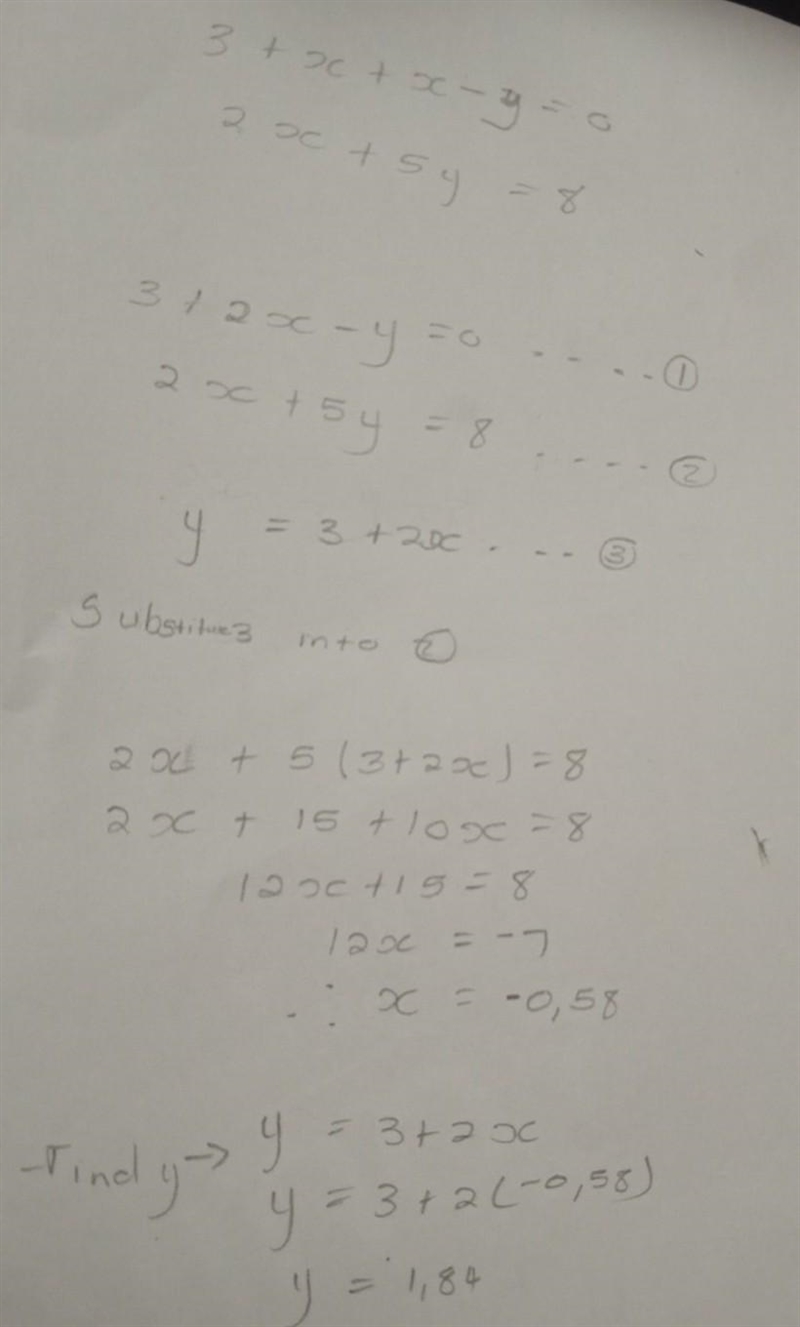 3 + x + x - y = 0
2x + 5y = 8
3 + 2x - y = 0 ..... ①
2x + 5y = 8 ..... ②
y = 3 + 2x . . . . ③
Substitue 3 into ②
2x + 5(3+2x) = 8
2x + 15 + 10x = 8
12x + 15 = 8
12x = -7
∴ x = -0,58
Find y → y = 3 + 2x
y = 3 + 2(-0,58)
y = 1,84